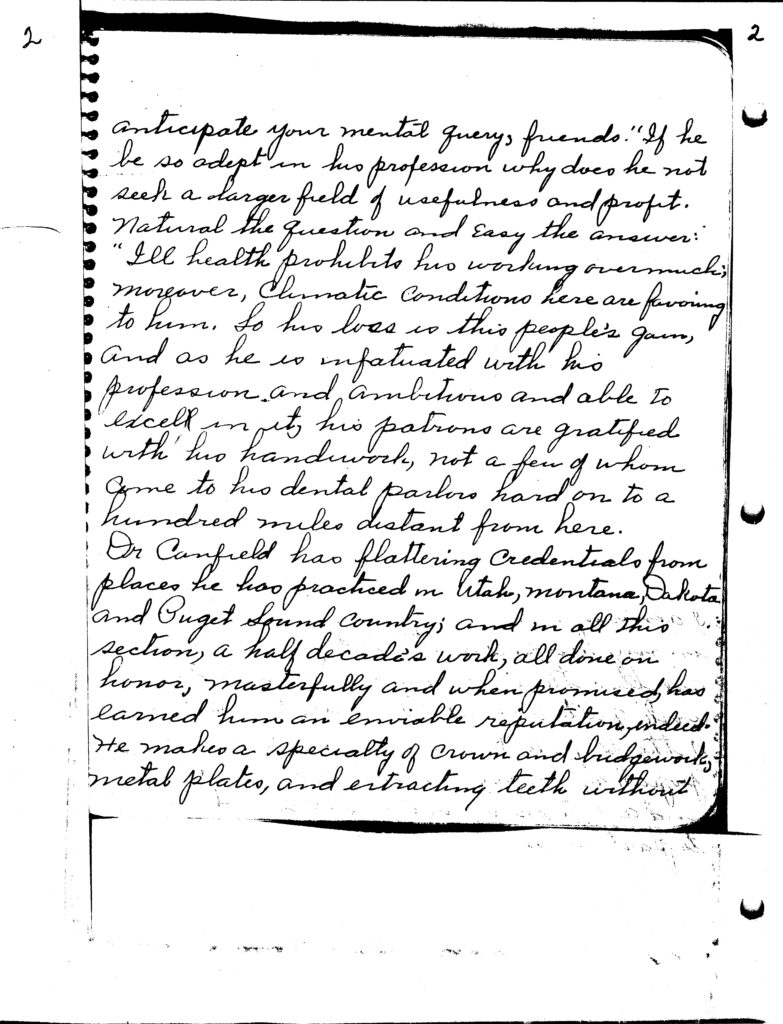 2
2
anticipate your mental query, friends. "If he
be so adept in his profession why does he not
seek a larger field of usefulness and profit.
Natural the question and Easy the answer:
"Ill health prohibits his working overmuch;
moreover, Climatic Conditions here are favoring
to him. So his loss is this people's gain,
and as he is infatuated with his
profession and ambitious and able to
excell in it, his patrons are gratified
with his handiwork, not a few of whom
Come to his dental parlors hard on to a
hundred miles distant from here.
Dr Canfield has flattering Credentials from
places he has practiced in Utah, Montana, Dakota
and Puget Sound Country; and in all this
section, a half decade's work, all done on
honor, masterfully and when promised, has
earned him an enviable reputation, indeed.
He makes a specialty of Crown and bridgework,
metal plates, and extracting teeth without